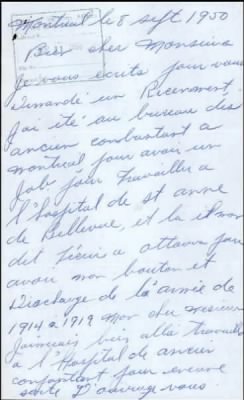 Montreal le 8 sept 1950
Bien cher Monsieur
Je vous écrits pour vous
Demandé un
J'ai été au bureau des
ancien combattant a
montreal pour avoir un
Job pour travailler a
l'hospital de St anne
de Bellevue, et la il mon
dit a ottawa pour
avoir mon bouton et
Discharge de la année de
1914 a 1919 Mon cher monsieur
J'aimerais bien allé travaillé
a l'Hospital de ancien
combattant pour
sorte D'ouvrage vous